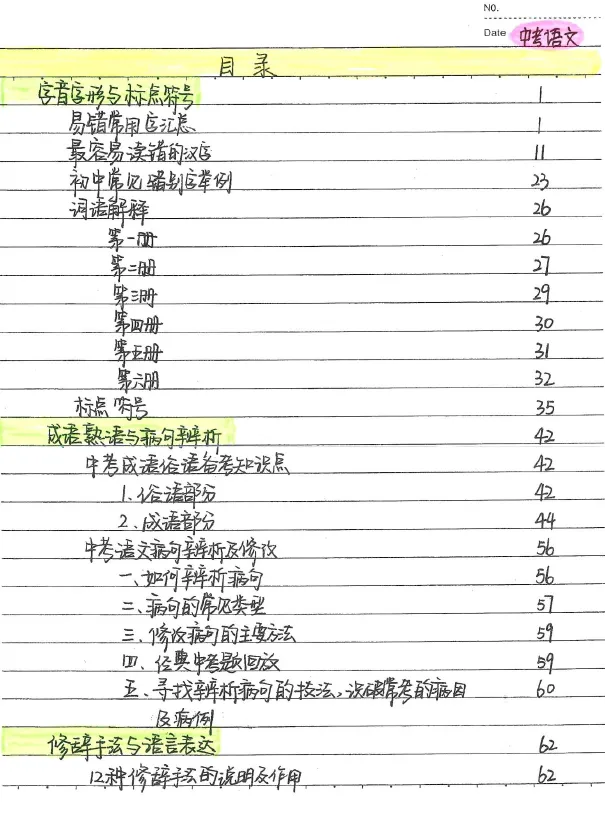 NO.
Date 中考语文
目录
字音字形与标点符号 1
易错常用字汇总 1
最容易读错的汉字 11
初中常见错别字举例 23
词语解释 26
第一册 26
第二册 27
第三册 29
第四册 30
第五册 31
第六册 32
标点符号 35
成语熟语与病句辨析 42
中考成语俗语备考知识点 42
1.俗语部分 42
2.成语部分 44
中考语文病句辨析及修改 56
一、如何辨析病句 56
二、病句的常见类型 57
三、修改病句的主要方法 59
四、经典中考题回放 59
五、寻找辨析病句的技法,说破常考的病因 60
及病例
修辞手法与语言表达 62
12种修辞手法的说明及作用 62